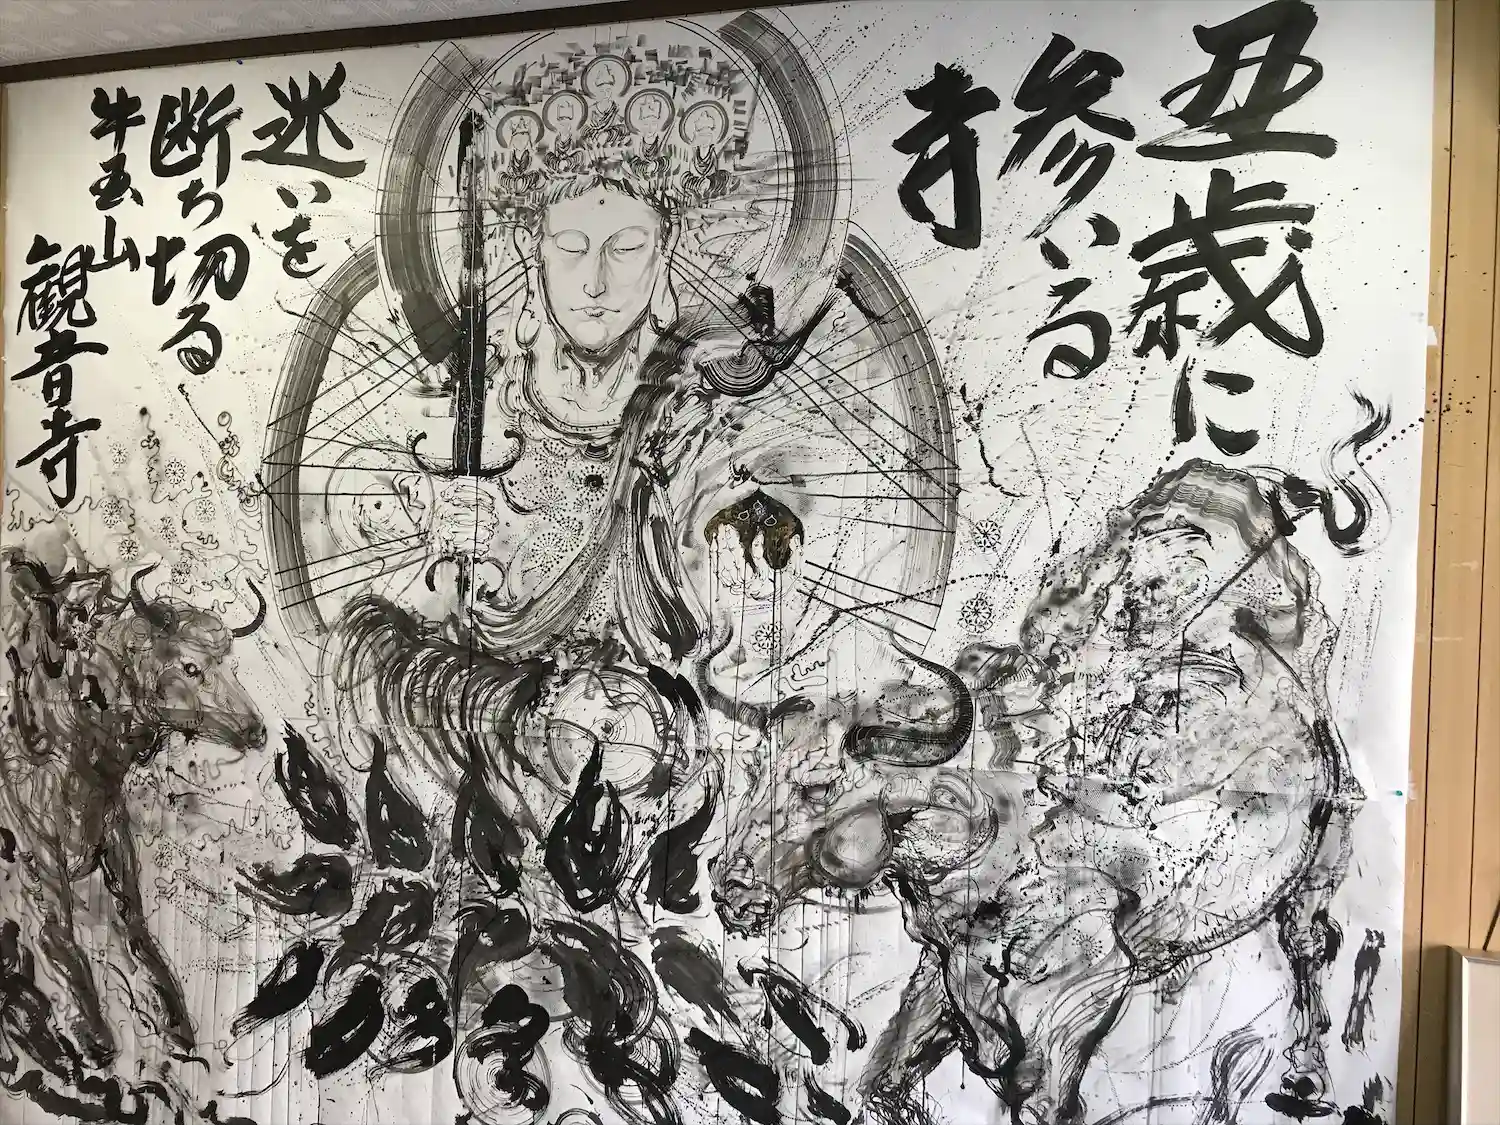 丑歳に
参いる
寺
迷いを
断ち切る
牛玉山
観音寺